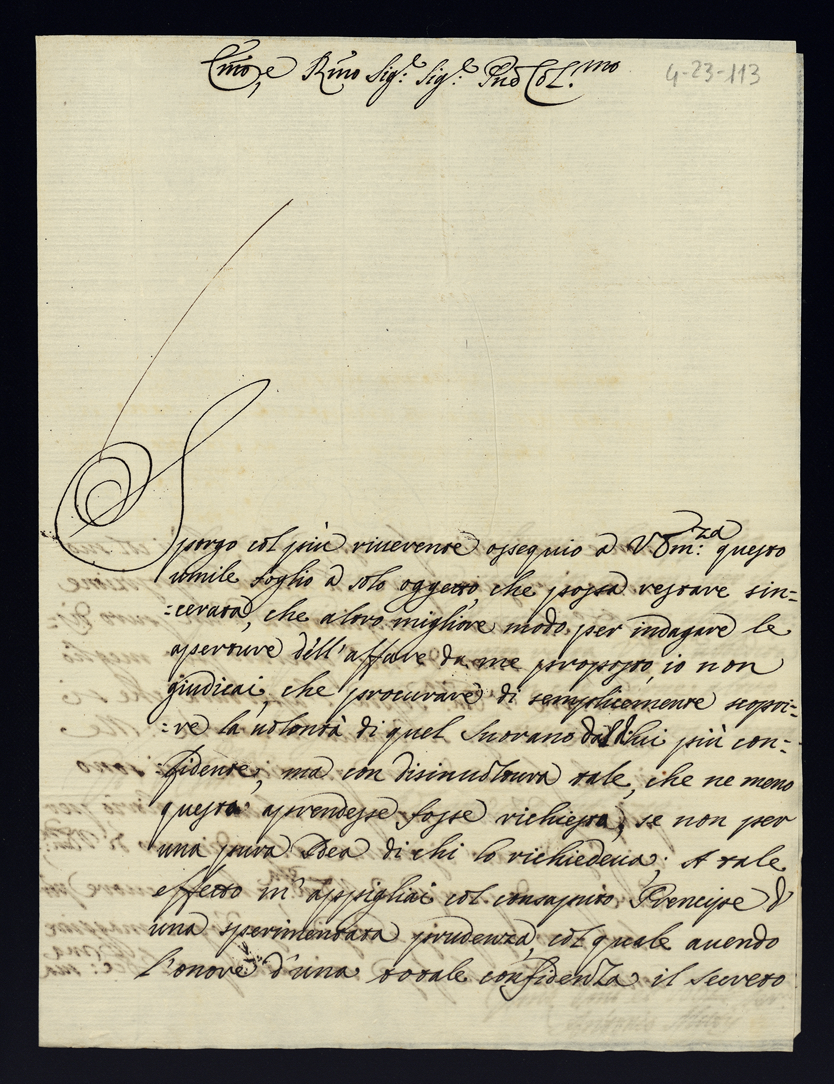 Em̃o, e Rm̃o Sig.r Sig.r Prõ Col.mo
4-23-113
Sporgo col più riuerente ossequio à V Em.za questo
umile foglio à solo oggetto, che possa restare sin=
=cerata, che altro migliore modo per indagare le
aperture dell'affare da me proposto, io non
giudicai, che procurare di semplicemente scopri=
=re la uolontà di quel Sourano dal lui più con=
fidente, ma con disinuoltura tale, che ne meno
questa aprendesse fosse richiesta, se non per
una pura Idea di chi lo richiedeua; A tale
effetto m'appigliai col consaputo Prencipe d'
una sperimentata prudenza, col quale auendo
l'onore d'una totale confidenza il secreto